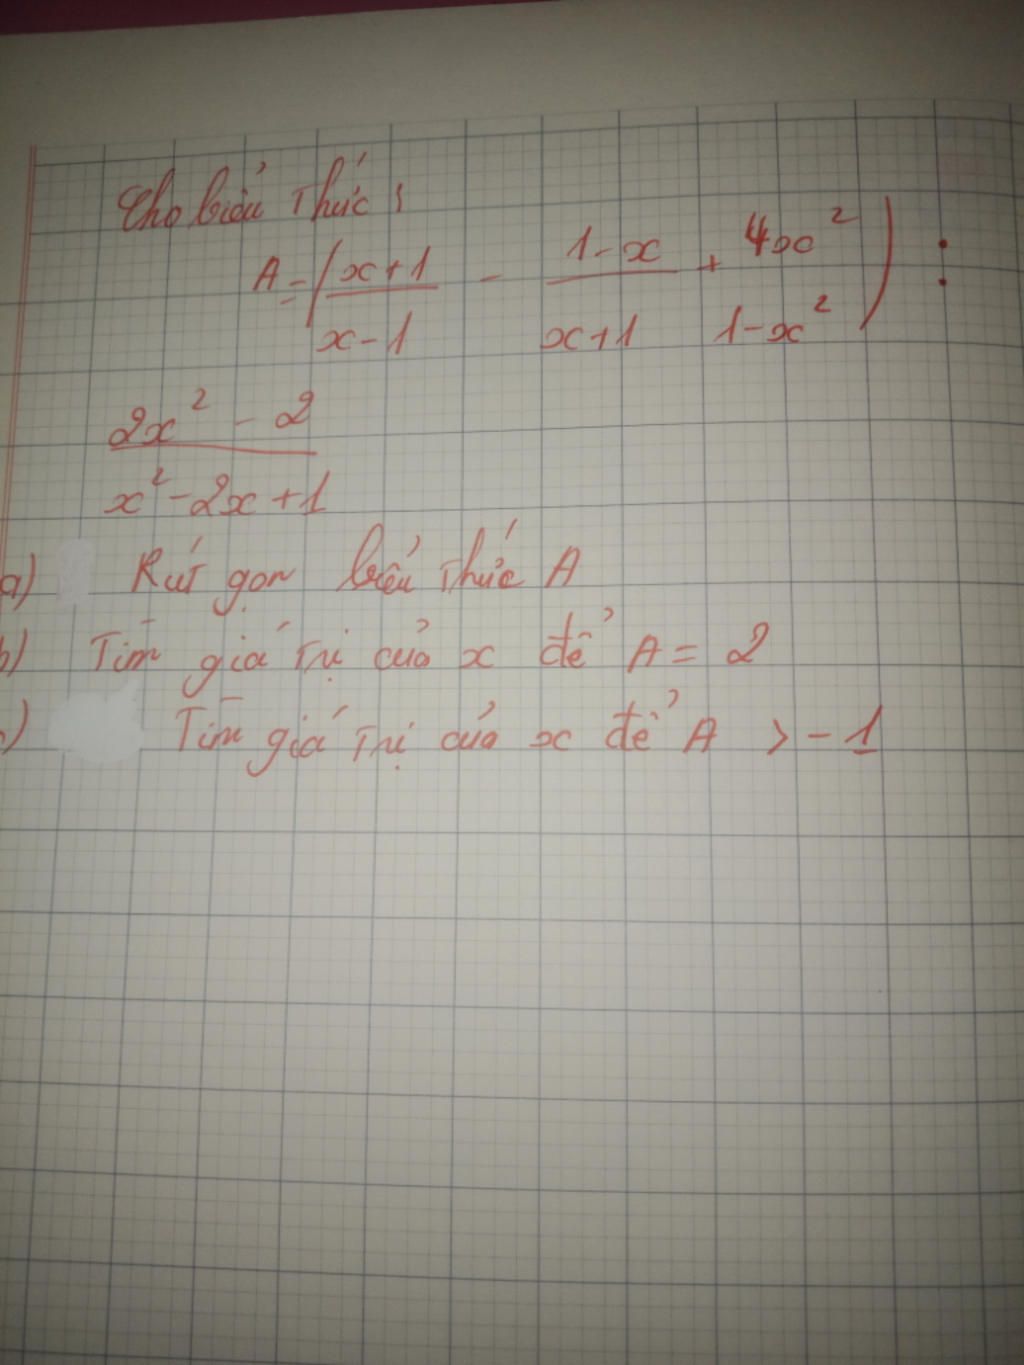 Cho biểu thức :
A = ( x+1 / x-1 - 1-x / x+1 + 4x² / 1-x² ) :
2x² - 2 / x² - 2x + 1
a) Rút gọn biểu thức A
b) Tìm giá trị của x để A = 2
c) Tìm giá trị của x để A > -1